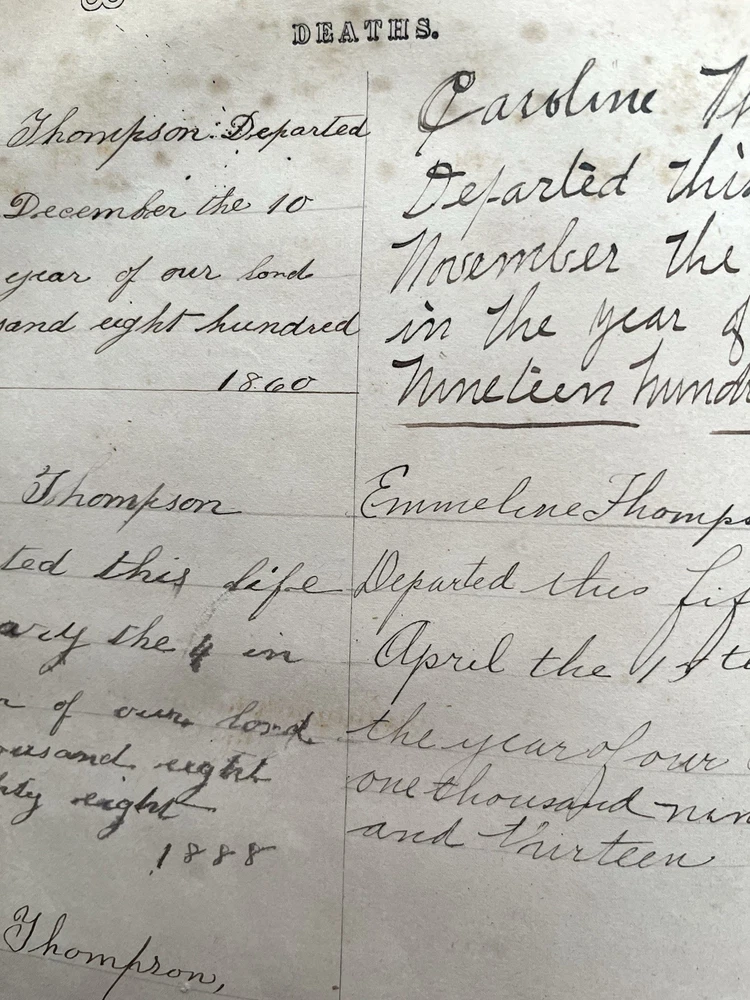 DEATHS.
Thompson: Departed
December the 10
year of our lord
sand eight hundred
1860
Thompson
ted this life
ary the 4 in
r of our lord
ousand eight
hty eight
1888
Thompson,
Caroline Th
Departed this
November the
in the year of
Nineteen hundr
Emmeline Thomps
Departed this lif
April the 1st
the year of our
one thousand nin
and thirteen